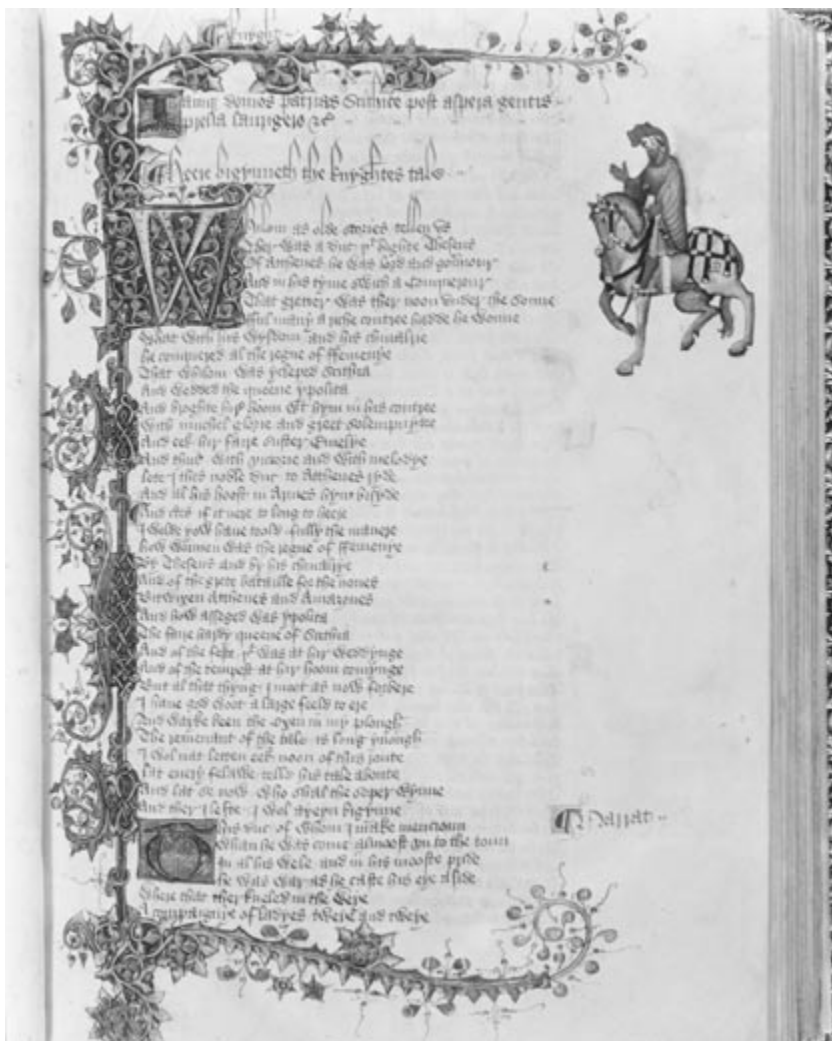 Knyght
Iamq domos patrias Scithice post aspera gentis
prelia laurigero &c
Heere bigynneth the knyghtes tale
Whilom as olde stories tellen us
Ther was a duc yt highte Theseus
Of Atthenes he was lord and gouernour
And in his tyme swich a Conquerour
That gretter was ther noon under the sonne
fful many a riche contree hadde he wonne
What with his wysdom and his chiualrie
he conquered al the regne of ffemenye
That whilom was ycleped Scithia
And wedded the queene ypolita
And broghte hir hoom wt hym in his contree
With muchel glorie and greet solempnytee
And eek hir faire suster Emelye
And thus with victorie and with melodye
lete I this noble duc to Atthenes ryde
And al his hoost in Armes hym bisyde
And certes if it nere to long to heere
I wolde yow haue toold fully the manere
how wonnen was the regne of ffemenye
By Theseus and by his chiualrye
And of the grete bataille for the nones
Bitwixen Atthenes and Amazones
And how asseged was ypolita
The faire hardy queene of Scithia
And of the feste yt was at hir weddynge
And of the tempest at hir hoom comynge
But al that thyng I moot as now forbere
I haue god woot a large feeld to ere
And wayke been the oxen in my plough
The remenant of the tale is long ynough
I wol nat letten eek noon of this route
lat euery felawe telle his tale aboute
And lat se now who shal the soper wynne
And ther I lefte I wol ayeyn bigynne
This duc of whom I make mencioun
Whan he was come almoost vn to the toun
In al his wele and in his mooste pride
he was war as he caste his eye aside
Where that ther kneled in the weye
A compaignye of ladyes tweye and tweye
Narrat